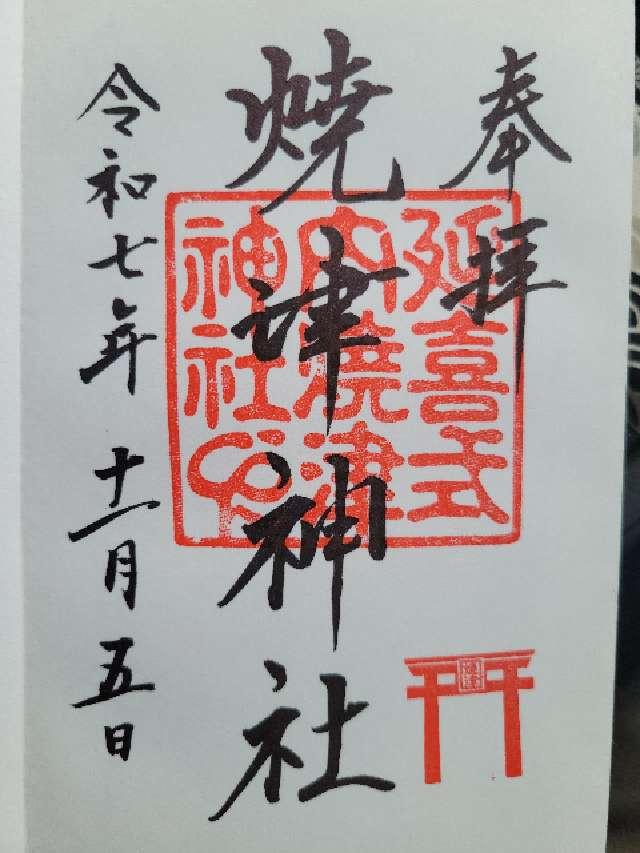 奉拝
延喜式
内焼津
神社印
焼津神社
令和七年十一月五日